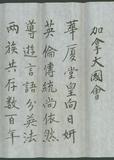 加拿大國會
華廈堂皇向日妍
英倫傳統尚依然
尊道言語分英法
兩族共存数百年